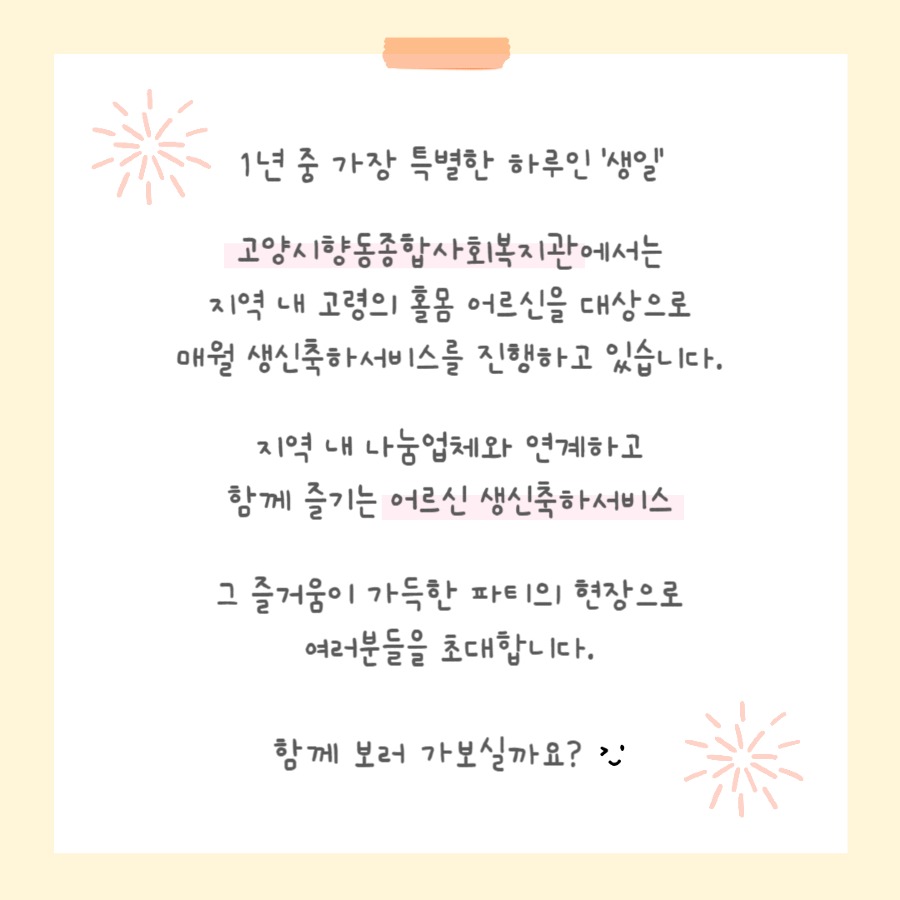 1년 중 가장 특별한 하루인 '생일'
고양시향동종합사회복지관에서는
지역 내 고령의 홀몸 어르신을 대상으로
매월 생신축하서비스를 진행하고 있습니다.
지역 내 나눔업체와 연계하고
함께 즐기는 어르신 생신축하서비스
그 즐거움이 가득한 파티의 현장으로
여러분들을 초대합니다.
함께 보러 가보실까요?